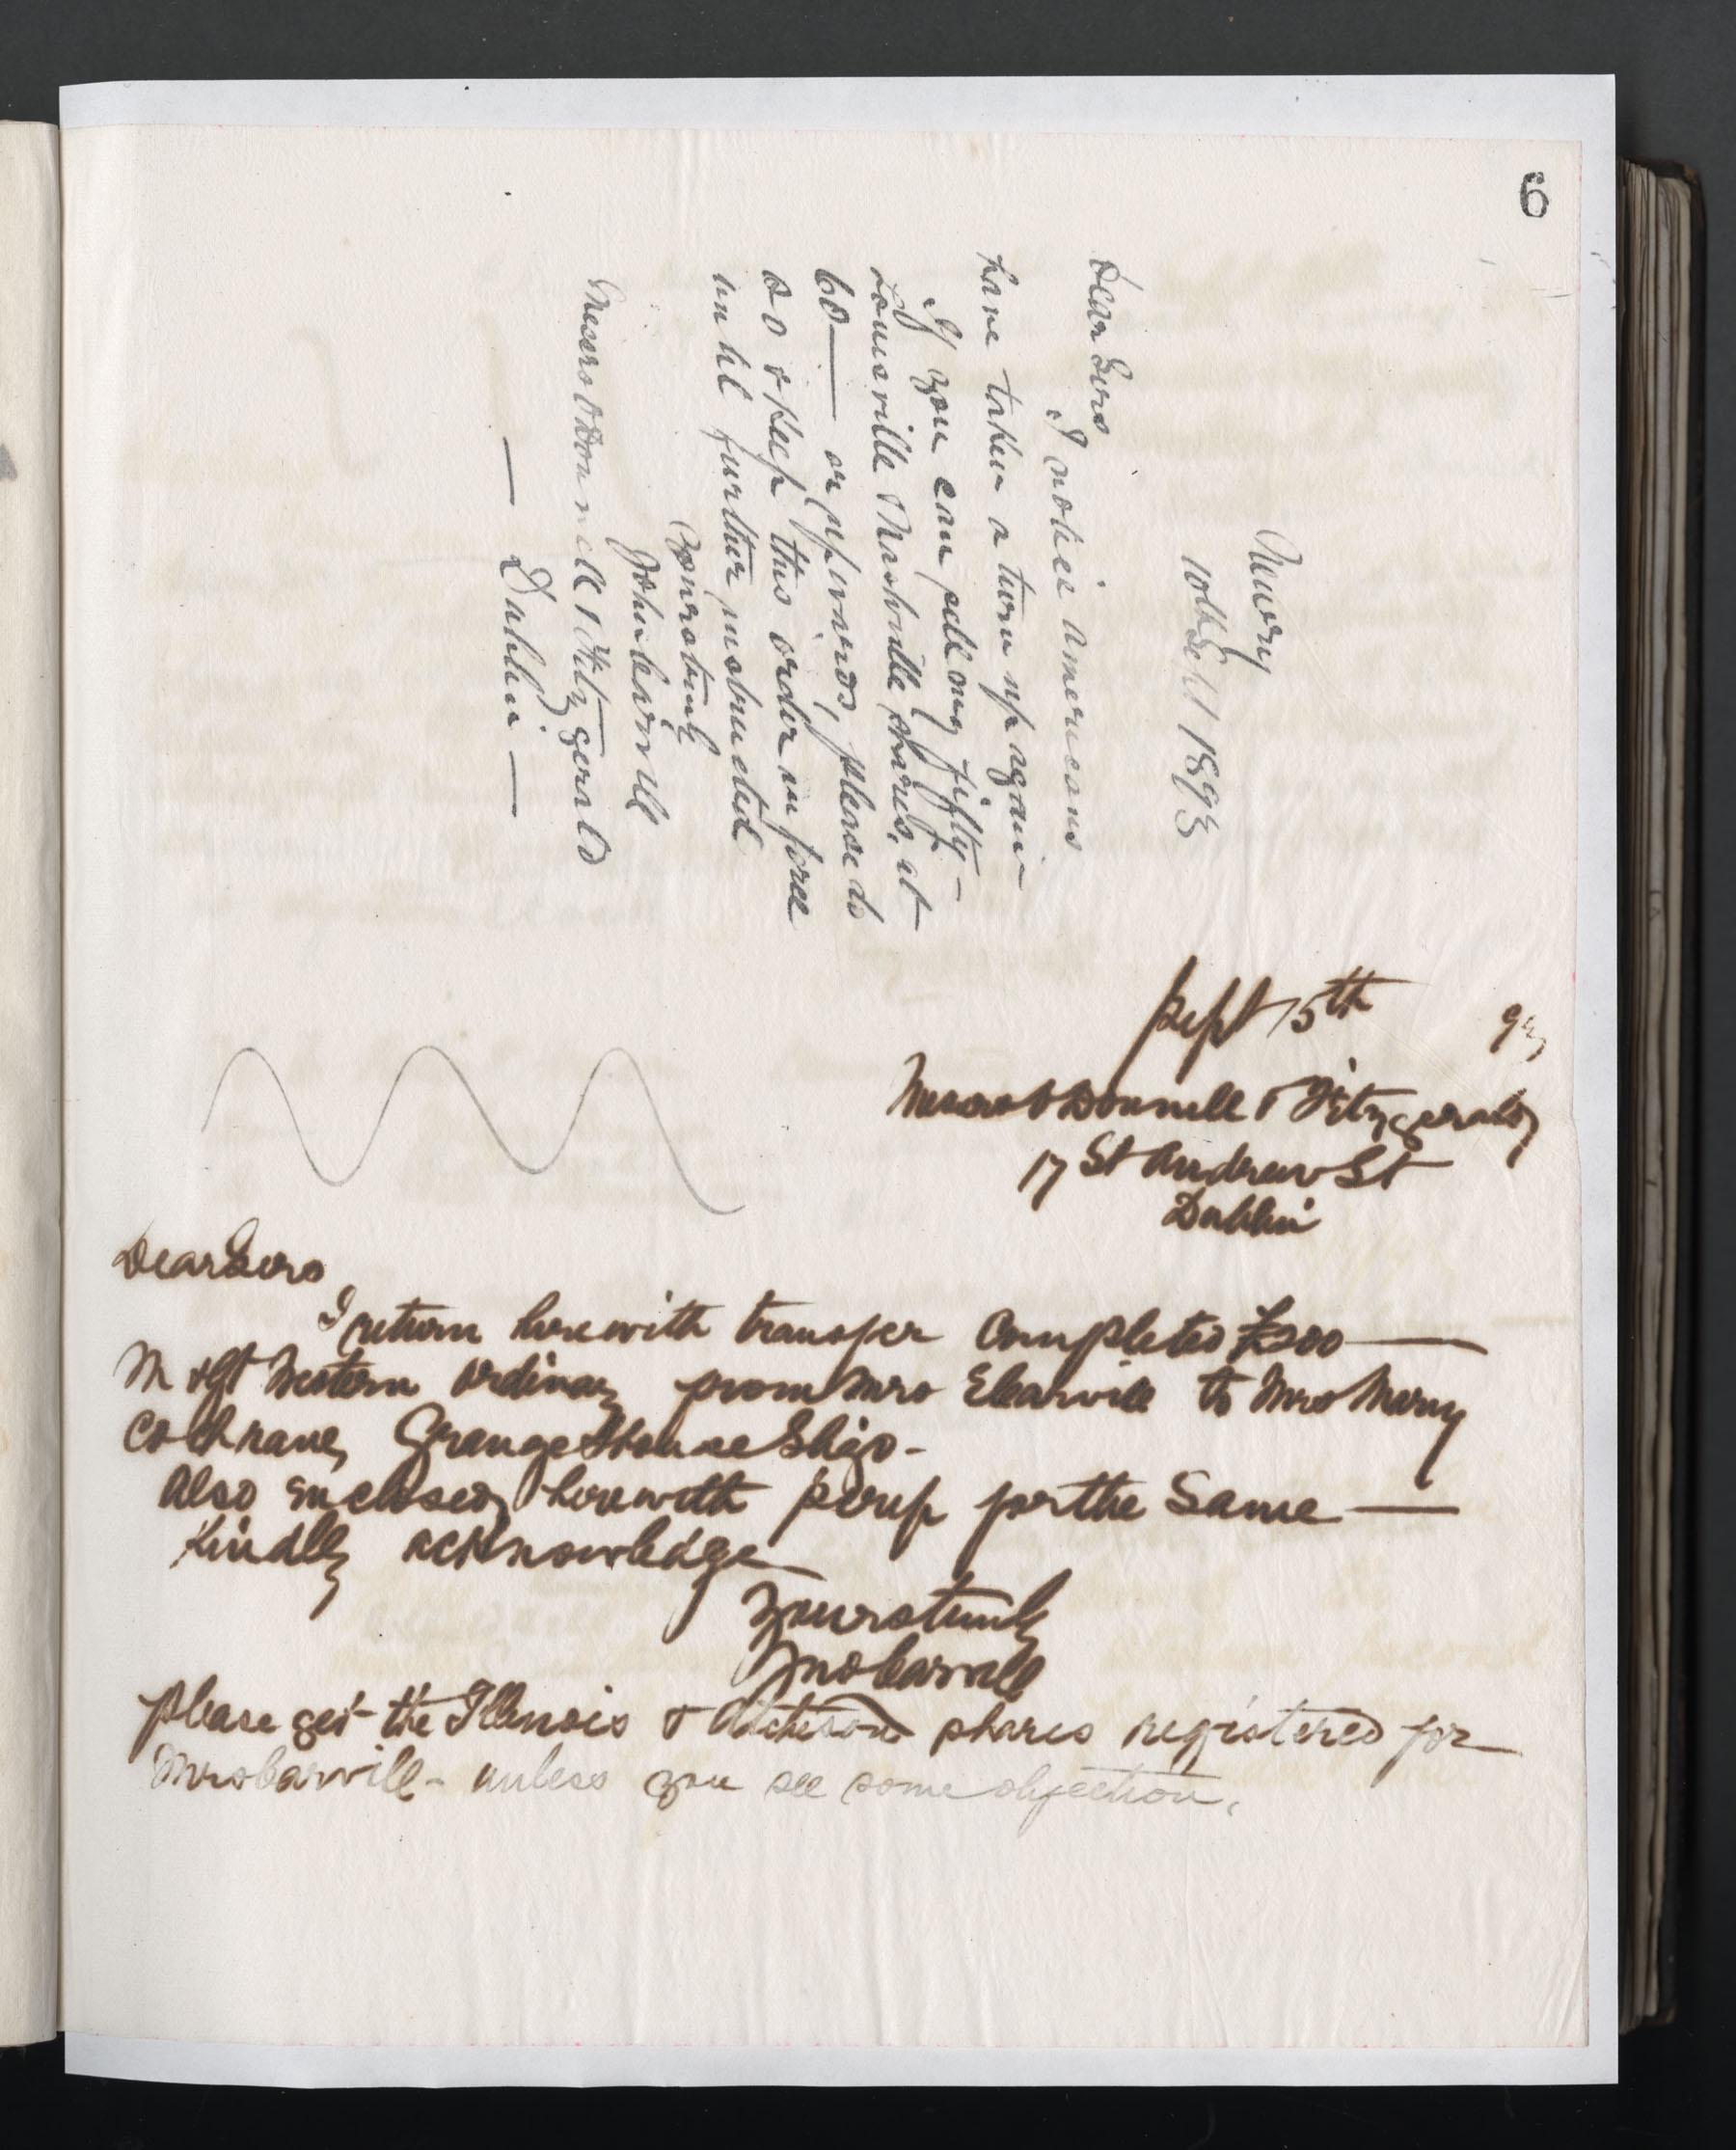 6
Newry
10th Sept 1893
Dear Sirs
I notice Americans
have taken a turn up again
If you can sell my fifty -
Louisville Nashville shares, at
60 — or upwards, please do
so & keep this order in force
until further instructed
Yours truly
John Carvill
Messrs O'Donnell & Fitzgerald
— Dublin —
Sept 15th 93
Messrs O'Donnell & Fitzgerald
17 St Andrew St
Dublin
Dear Sirs
I return herewith transfer completed £200 —
M & Gt Western Ordinary from Mrs E Carvill to Mrs Mary
Cochrane, Grange House Sligo -
Also enclosed herewith scrip for the same —
Kindly acknowledge
Yours truly
Jno Carvill
please get the Illinois & Atcheson shares registered for
Mrs Carvill - unless you see some objection.